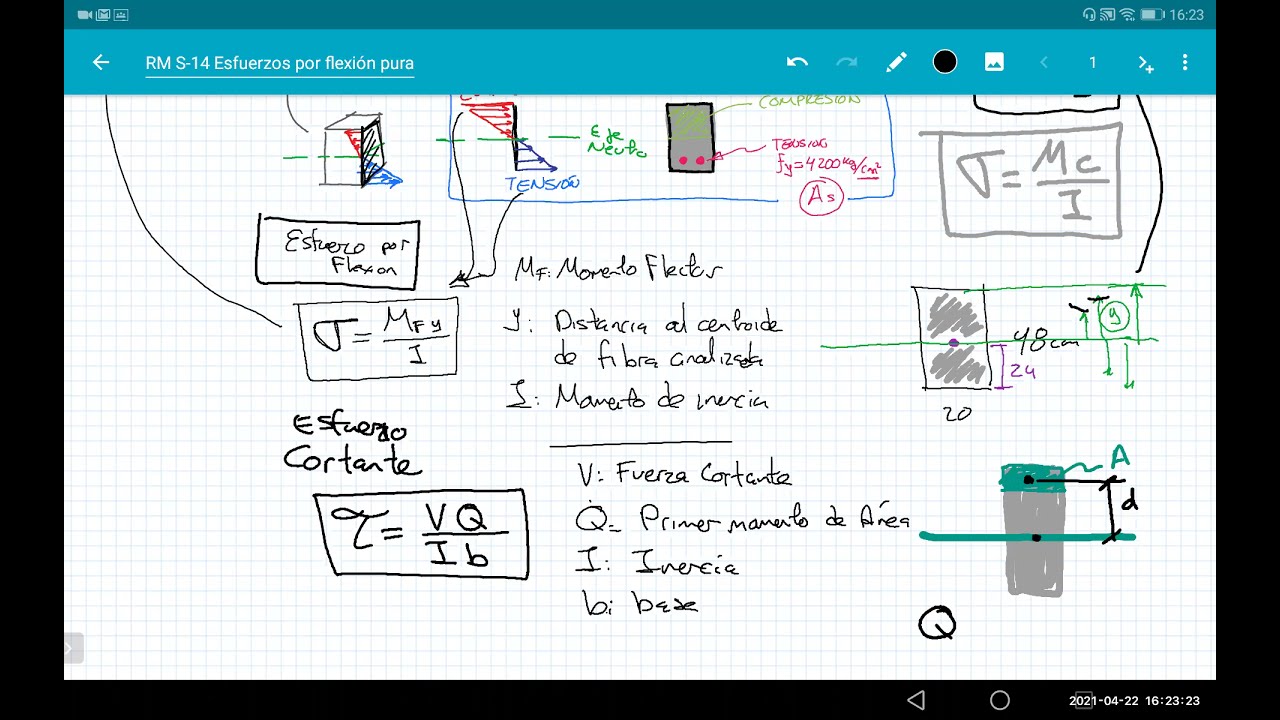 16:23
RM S-14 Esfuerzos por flexión pura
1
COMPRESIÓN
Eje
Neutro
TENSIÓN
fy=4200kg/cm²
As
TENSIÓN
σ=Mc/I
Esfuerzo por
Flexion
MF: Momento Flector
σ=MF y/I
y: Distancia al centroide
de fibra analizada
I: Momento de inercia
y
48cm
24
20
Esfuerzo
Cortante
V: Fuerza Cortante
A
τ=VQ/Ib
Q= Primer momento de Área
d
I: Inercia
b: base
Q
2021-04-22 16:23:23